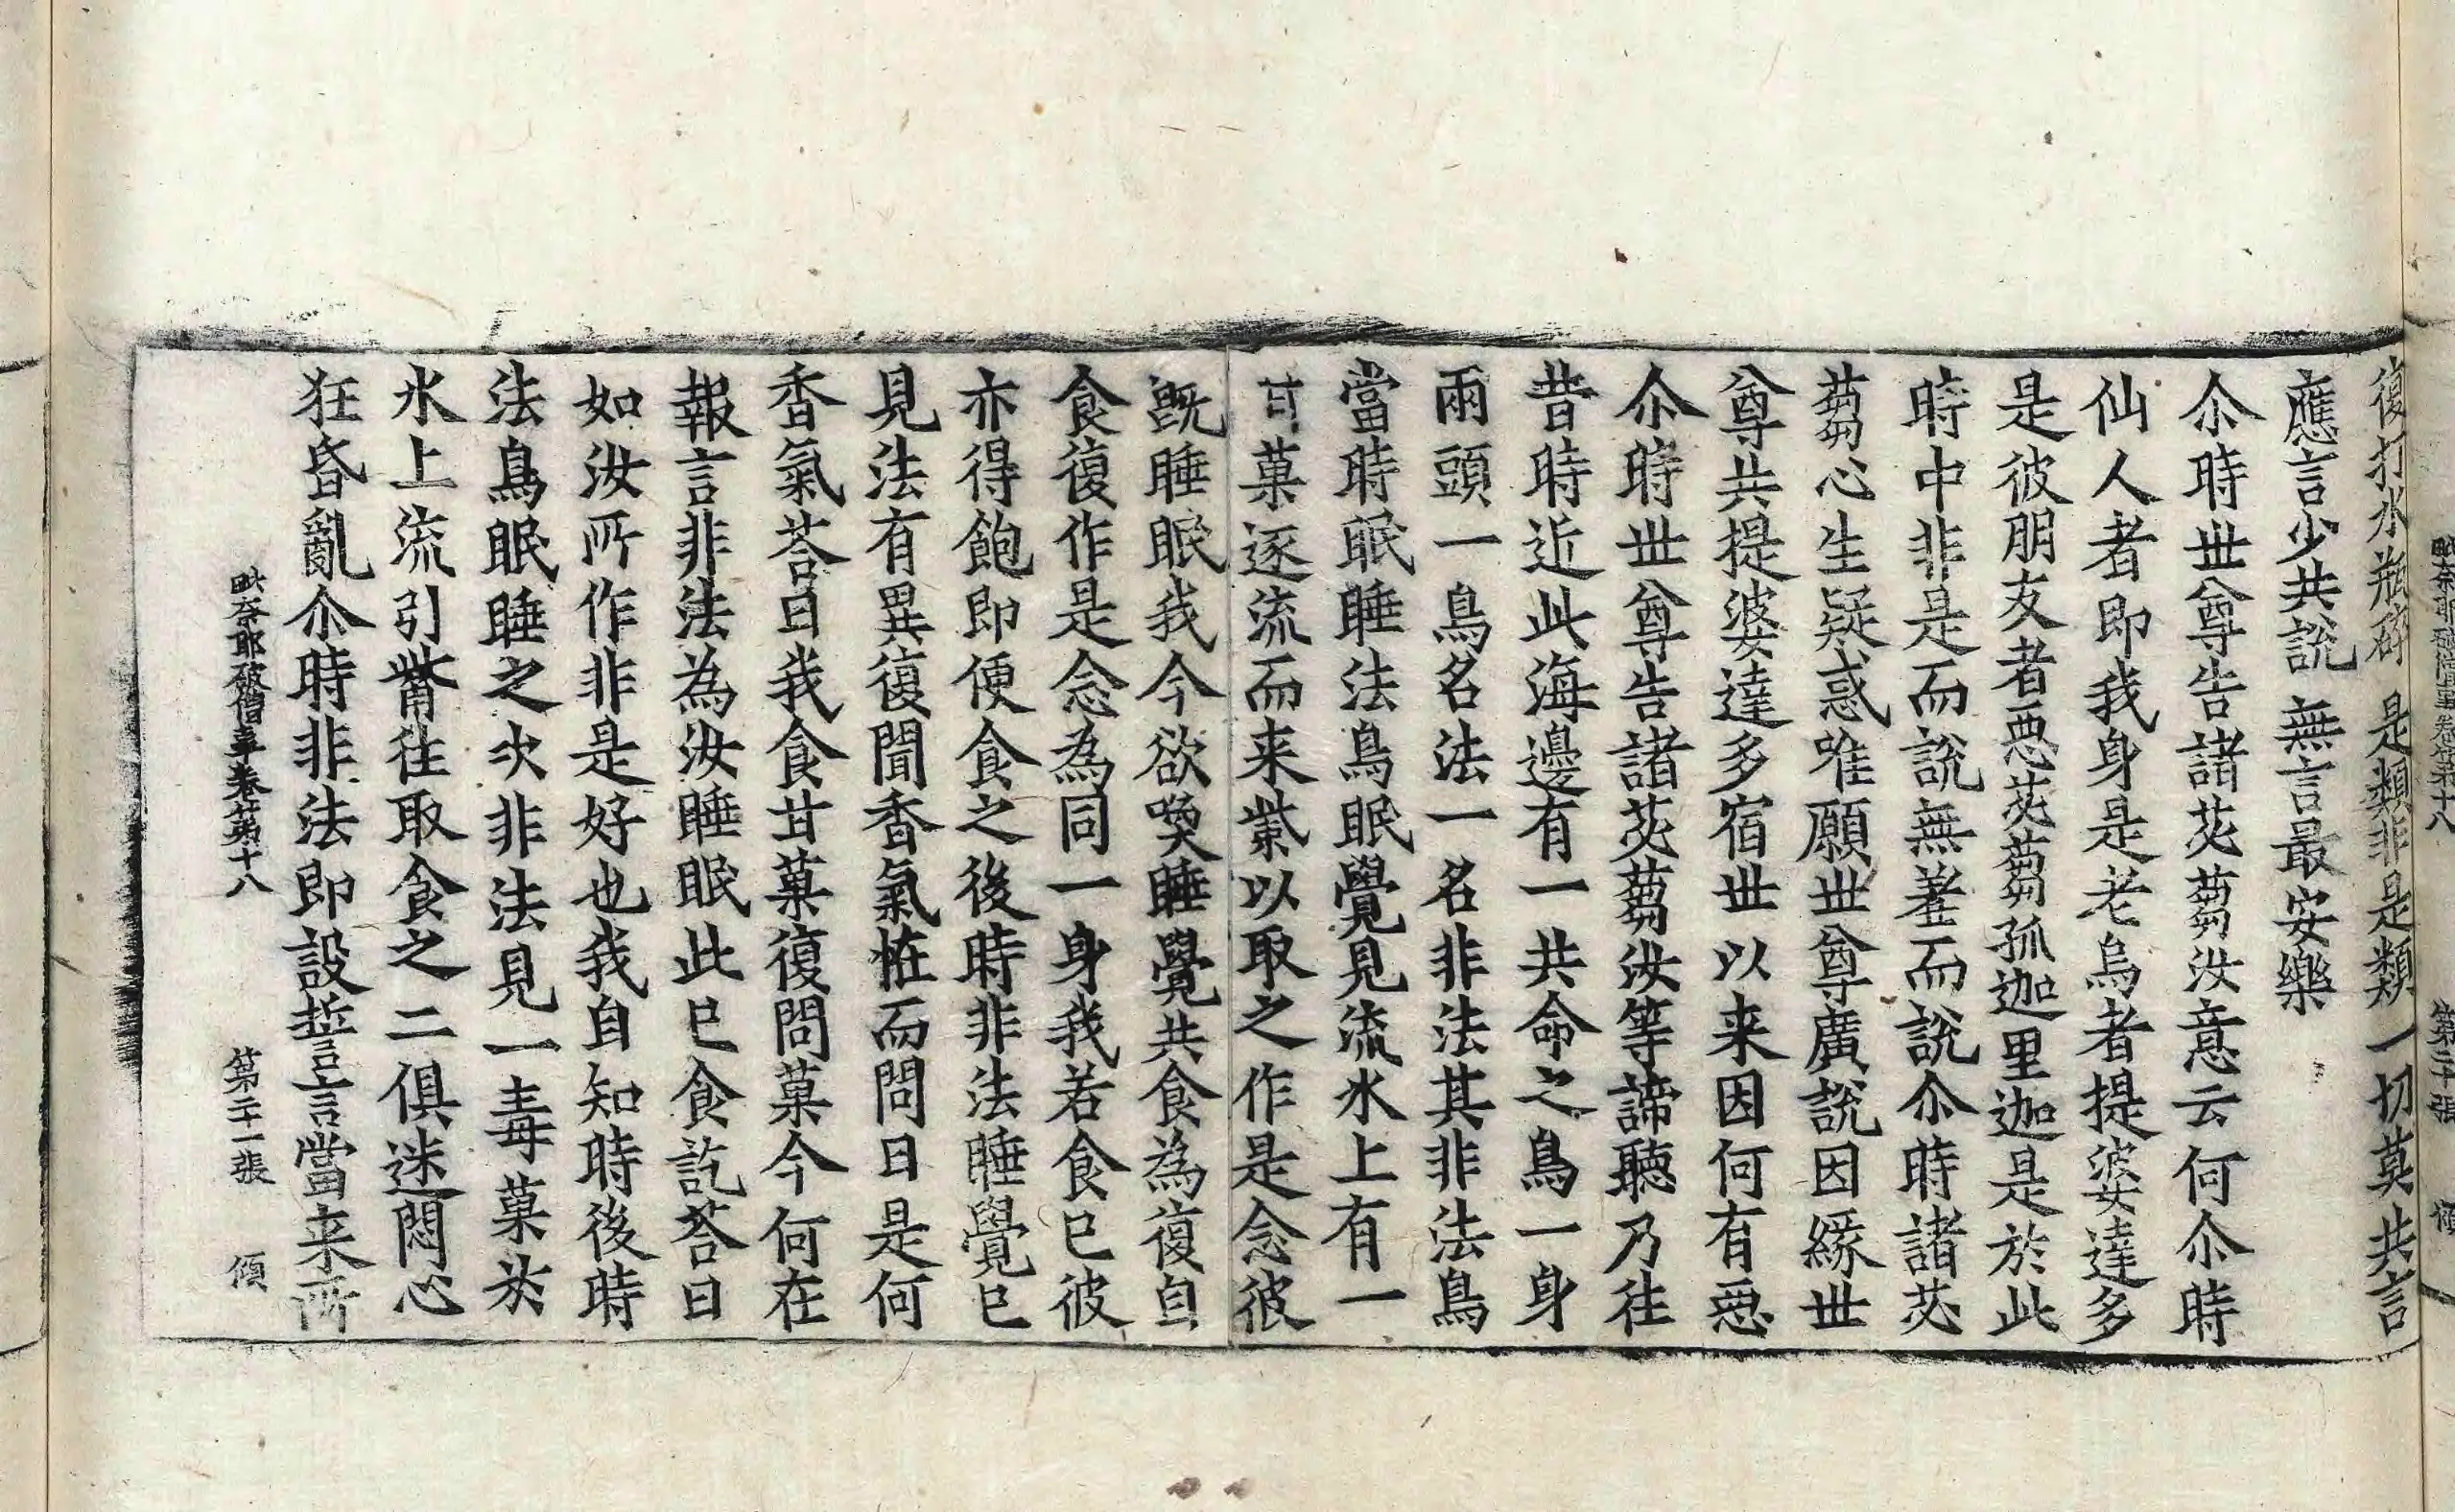 毗奈耶破僧事卷第十八 第二十張 傾
復打水瓶碎 是類非是類 一切莫共言
應言少共說 無言最安樂
尒時世尊告諸苾蒭汝意云何尒時
仙人者即我身是老烏者提婆達多
是彼朋友者惡苾蒭孤迦里迦是於此
時中非是而說無羞而說尒時諸苾
蒭心生疑惑唯願世尊廣說因緣世
尊共提婆達多宿世以来因何有惡
尒時世尊告諸苾蒭汝等諦聽乃往
昔時近此海邊有一共命之鳥一身
兩頭一鳥名法一名非法其非法鳥
當時眠睡法鳥眠覺見流水上有一
甘菓逐流而来紫以取之作是念彼
旣睡眠我今欲喚睡覺共食為復自
食復作是念為同一身我若食已彼
亦得飽即便食之後時非法睡覺已
見法有異復聞香氣恠而問曰是何
香氣荅曰我食甘菓復問菓今何在
報言非法為汝睡眠此已食訖荅曰
如汝所作非是好也我自知時後時
法鳥眠睡之次非法見一毒菓於
水上流引觜往取食之二俱迷悶心
狂昏亂尒時非法即設誓言當来所
毗奈耶破僧事卷第十八 第二十一張 傾